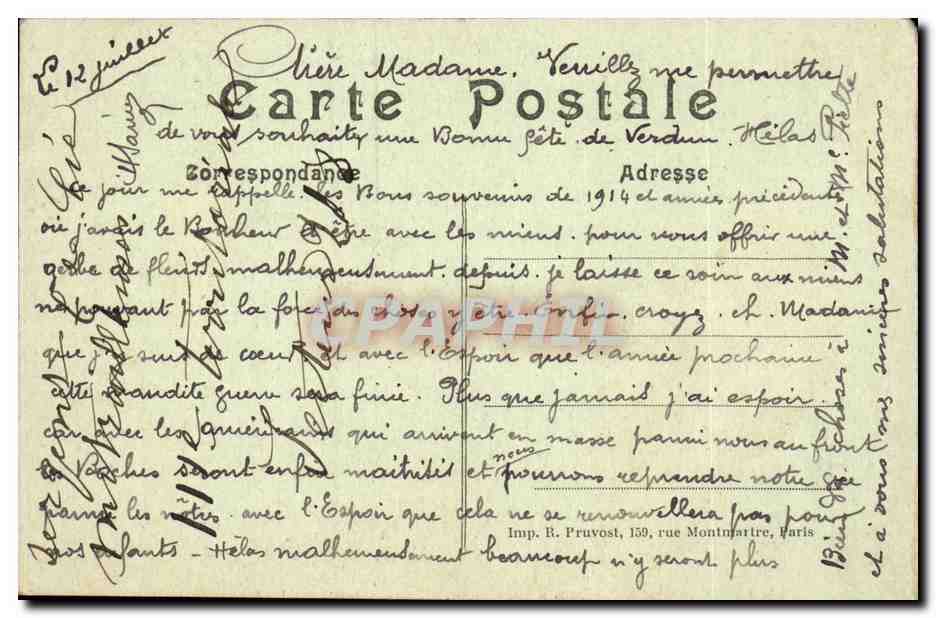 Le 12 juillet
Chère Madame. Veuillez me permettre
Carte Postale
de vous souhaiter une Bonne fête de Verdun. Hélas
Correspondance
Adresse
ce jour me rappelle les Bons souvenirs de 1914 et années précédentes
où j'avais le Bonheur d'être avec les miens. pour vous offrir une
gerbe de fleurs, malheureusement depuis je laisse ce soin aux miens
ne pouvant par la force des choses y être. Enfin croyez. ch. Madame
que j'y suis de coeur et avec l'Espoir que l'année prochaine
cette maudite guerre sera finie. Plus que jamais j'ai espoir.
car avec les américains qui arrivent en masse parmi nous au front
les Boches seront enfin maitrisés et nous pourrons reprendre notre
parmi les nôtres avec l'Espoir que cela ne se renouvellera pas pour
nos enfants - Hélas malheureusement beaucoup n'y seront plus
Imp. R. Pruvost, 159, rue Montmartre, Paris
Bien des choses à M et Me
et à vous mes sincères salutations
CPAPHIL